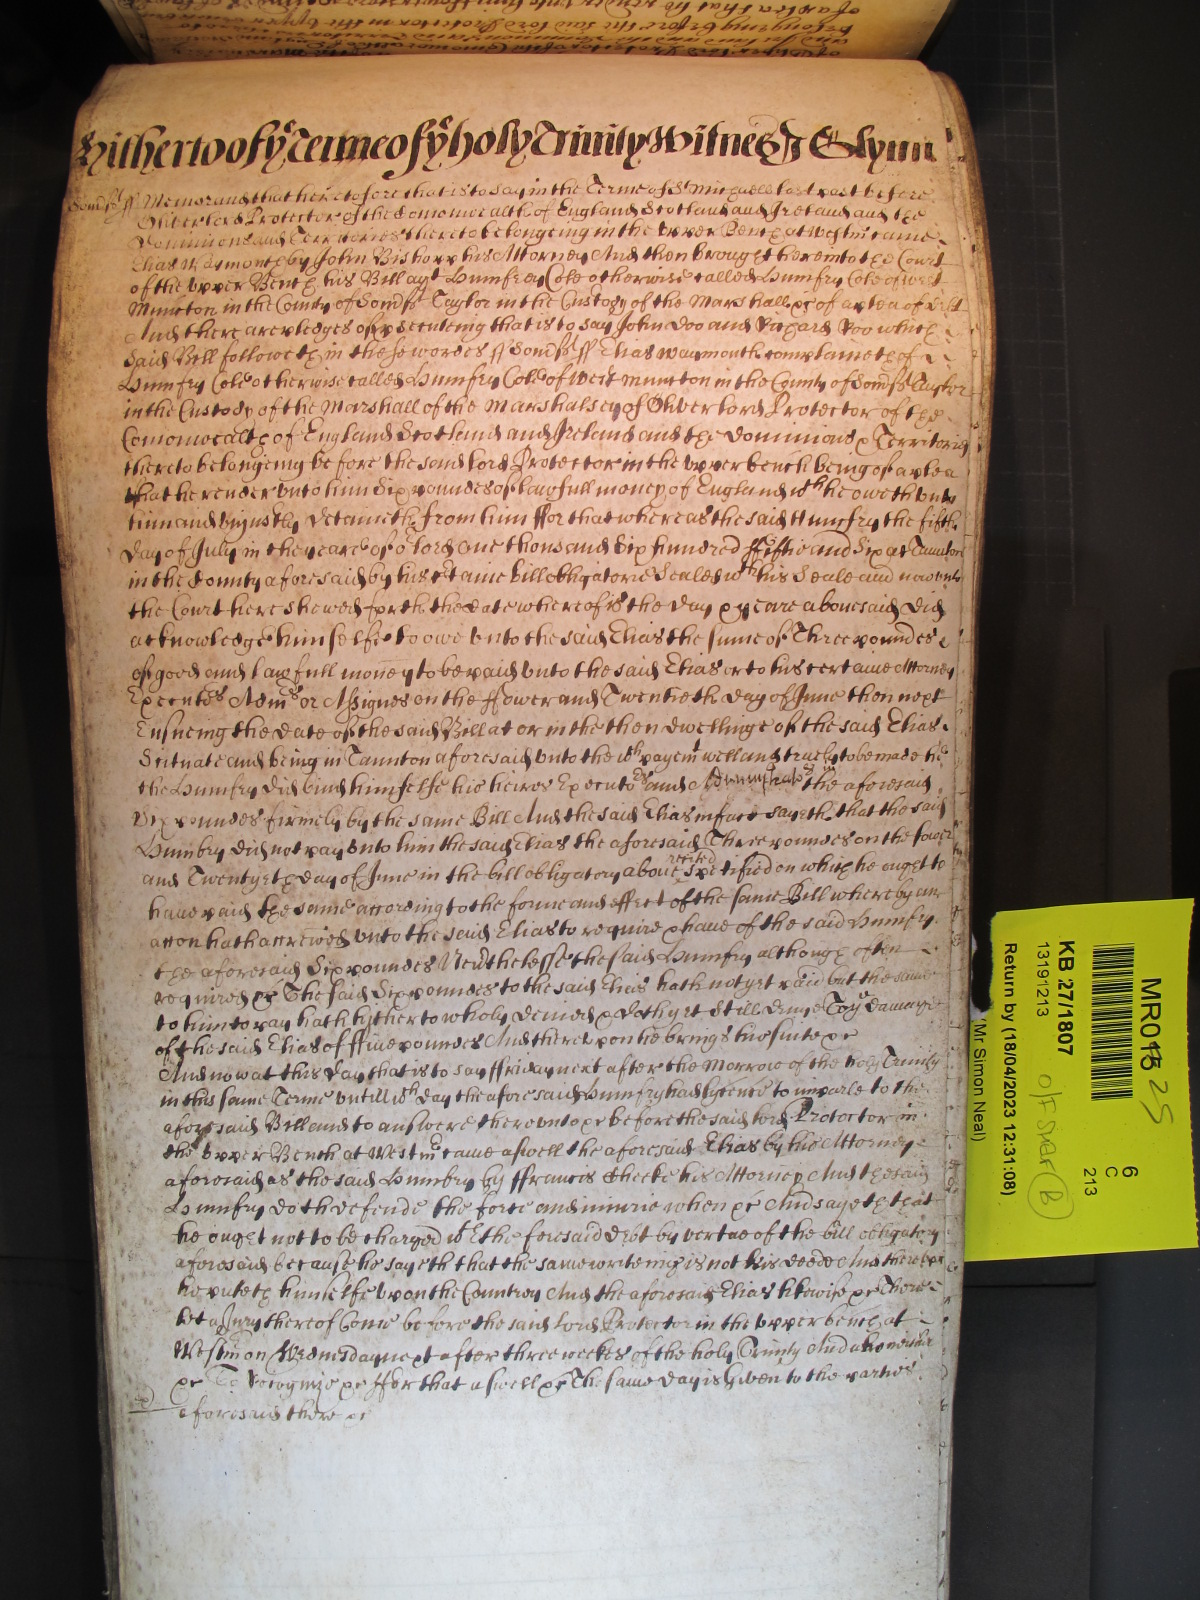 Hitherto of yͤ Terme of yͤ holy Trinity Witnes J Glynn
Somſſt ſſ Memorand that heretofore that is to say in the Terme of St Michaell last past before
Oliver lord Protector of the Comonwealth of England Scotland and Ireland and the
Dominions and Territories thereto belongeing in the upper Bench at Westmr came
Elias Waymonth by John Bishopp his Attorney And then brought here into the Court
of the upper Bench his Bill agt Humfrey Cole otherwise called Humfry Cole of west
Muncton in the County of Somſſt Taylor in the Custody of the Marshall &c of a plea of debt
And there are pledges of prosecuteing that is to say John Doo and Richard Roo which
said Bill followeth in these wordes ſſ Somſſt ſſ Elias waymonth complaineth of
Humfry Cole otherwise called Humfry Cole of West muncton in the County of Somſſt Taylor
in the Custody of the Marshall of the Marshalsey of Oliver lord Protector of the
Comonwealth of England Scotland and Ireland and the Dominions & Territories
thereto belongeing before the said lord Protector in the upper bench being of a plea
that he render unto him Six poundes of lawfull money of England wͨh he oweth unto
him and unjustly detaineth from him ffor that whereas the said Humfry the fifth
day of July in the yeare of oͬ lord one thousand Six hundred ffiftie and Six at Taunton
in the County aforesaid by his certaine bill obligatorie Sealed wth his Seale and now unto
the Court here shewed forth the date whereof is the day & yeare abovesaid did
acknowledge himselfe to owe unto the said Elias the sume of Three poundes
of good and lawfull money to be paid unto the said Elias or to his certaine Attorney
Executoͬs Admͬs or Assignes on the ffower and Twentieth day of June then next
Ensueing the date of the said Bill at or in the then dwellinge of the said Elias
Scituate and being in Taunton aforesaid unto the wͨh paymt well and truely to be made he
the Humfry did bind himselfe his heires Executoͬs and Administratoͬs in the aforesaid
Six poundes firmely by the same Bill And the said Elias in fact sayeth that the said
Humfry did not pay unto him the said Elias the aforesaid Three poundes on the fower
and Twentyeth day of June in the bill obligatory above recited specified on which he ought to
have paid the same according to the forme and effect of the same Bill whereby an
accon hath accrewed unto the said Elias to require & have of the said Humfry
the aforesaid Six poundes Neverthelesse the said Humfry although often
required &c The said Six poundes to the said Elias hath not yet paid but the same
to him to pay hath hitherto wholy denied & doth yet still deny To yͤ damage
of the said Elias of ffive poundes And thereupon he brings his suite &c
And now at this day that is to say ffriday next after the Morrow of the holy Trinity
in this same Terme untill wͨh day the aforesaid Humfry had lycence to imparle to the
aforesaid Bill and to answere thereunto &c before the said lord Protector in
the upper Bench at Westmr came aswell the aforesaid Elias by his Attorney
aforesaid as the said Humfry by ffrancis Cheeke his Attorney And the said
Humfry doth defende the force and iniurie when &c And sayeth that
he ought not to be charged wth the foresaid debt by vertue of the bill obligatory
aforesaid because he sayeth that the same writeing is not his deede And thereof
he puteth himselfe upon the Country And the aforesaid Elias likewise &c Therefore
let a Jury thereof Come before the said lord Protector in the upper bench at
Westmr on Wednesday next after three weekes of the holy Trinity And who neither
&c To Recognize &c ffor that aswell &c The same day is Given to the parties
aforesaid there &c
MR015 25
6
C
213
KB 27/1807
13191213
Return by (18/04/2023 12:31:08)
(Mr Simon Neal)